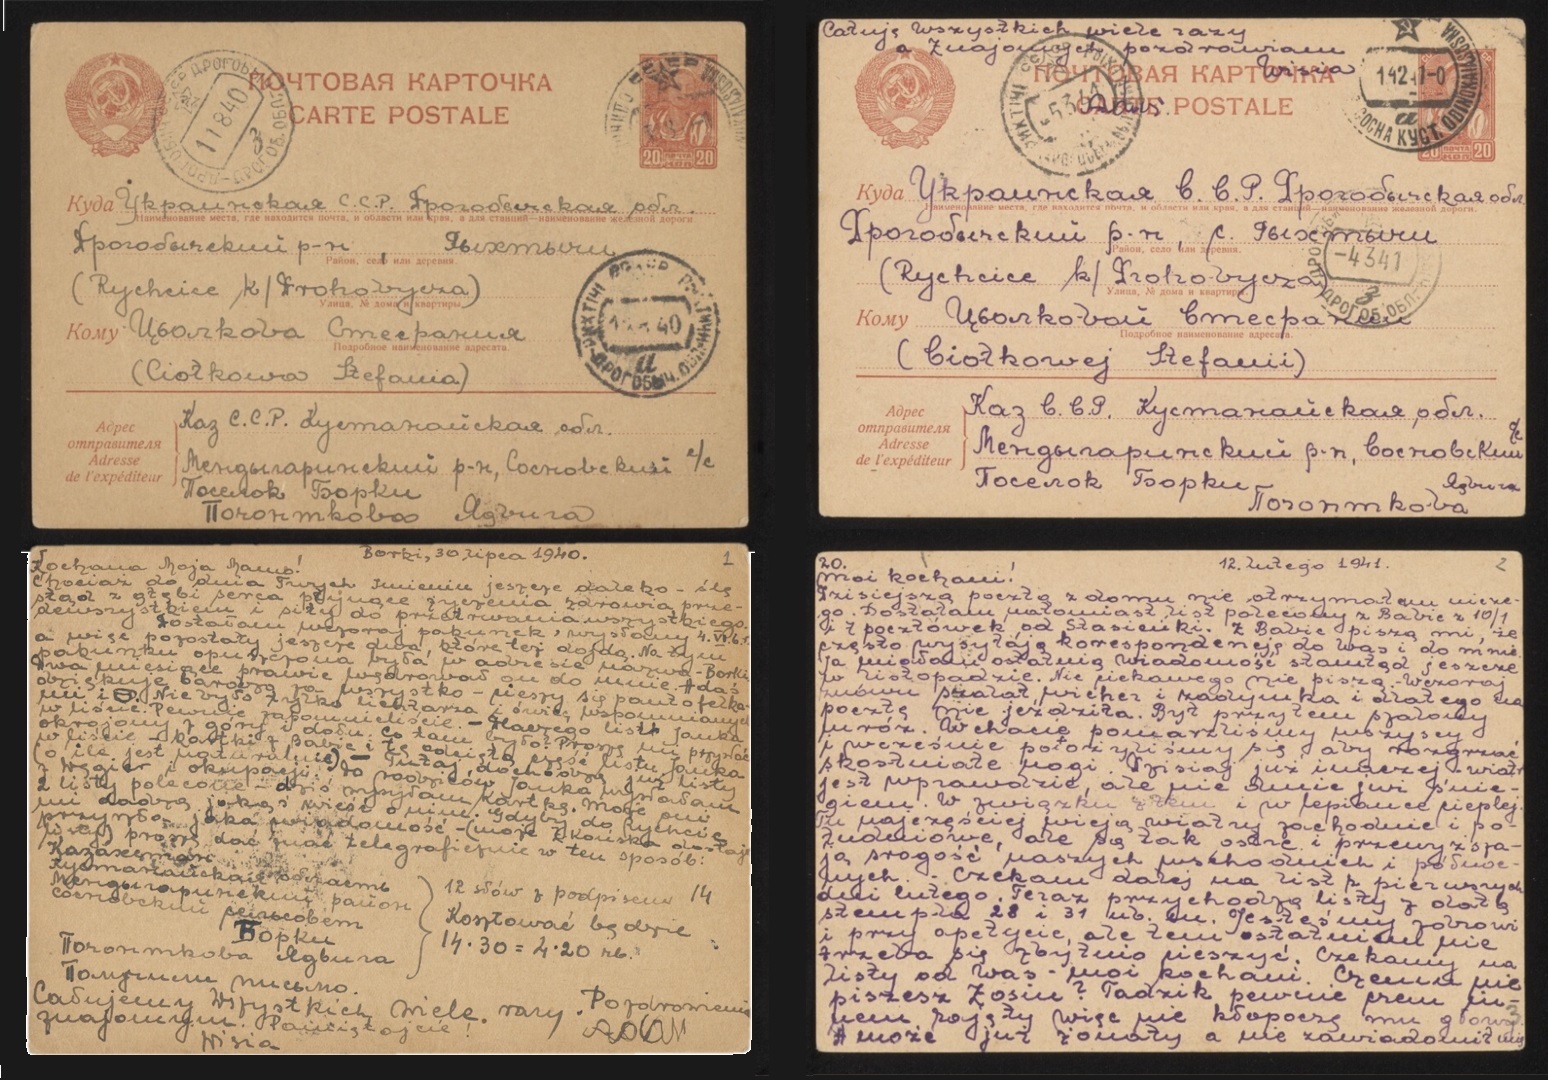 ПОЧТОВАЯ КАРТОЧКА
CARTE POSTALE
11 8 40
20 ПОЧТА КОП 20
Куда Украинская С.С.Р. Дрогобычская обл.
Наименование места, где находится почта, и области или края, а для станций—наименование железной дороги.
Дрогобычский р-н, Рыхтычи
Район, село или деревня.
(Rychcice k/Drohobycza)
Улица, № дома и квартиры.
Кому Цьолкова Стефания
Подробное наименование адресата.
(Ciołkowa Stefania)
Адрес отправителя
Adresse de l'expéditeur
Каз С.С.Р. Кустанайская обл.
Мендыгаринский р-н, Сосновский с/с
Поселок Борки
Почонткова Ядвига
Całuję wszystkich wiele razy
a znajomych pozdrawiam
Wisia
ПОЧТОВАЯ КАРТОЧКА
CARTE POSTALE
20
Куда Украинская С.С.Р. Дрогобычская обл.
Наименование места, где находится почта, и области или края, а для станций—наименование железной дороги.
Дрогобычский р-н, с. Рыхтычи
Район, село или деревня.
-4 3 41
(Rychcice k/Drohobycza)
Улица, № дома и квартиры.
Кому Цьолковой Стефании
Подробное наименование адресата.
(Ciołkowej Stefanii)
Адрес отправителя
Adresse de l'expéditeur
Каз С.С.Р. Кустанайская обл.
Мендыгаринский р-н, Сосновский с/с
Поселок Борки
Ядвига
Почонткова
Borki, 30 lipca 1940. 1
Kochana Moja Mamo!
Chociaż do dnia Twych imienin jeszcze daleko - ślę
stąd z głębi serca płynące życzenia zdrowia prze-
dewszystkiem i siły do przetrwania wszystkiego.
Dostałam wczoraj pakunek, wysłany 4.VI b.r.
a więc pozostały jeszcze dwa, które też dojdą. Na tym
pakunku opuszczona była w adresie nazwa - Borki.
Dwa miesiące prawie wędrował on do mnie. Adaś
dziękuje bardzo za wszystko - cieszy się pantofelka-
mi i Nie było tylko lichtarza i świec wspomnianych
w liście. Pewnie zapomnieliście. - Dlaczego list Janka
okrojony z góry i dołu. Co tam było? Proszę mi przysłać
w liście - kartki z Babic i tę odciętą część listu Janka
(o ile jest naturalnie) - Tutaj dochodzą już listy
z Węgier i okupacji. Do rodziców Janka wysłałam
2 listy polecone - dziś wysyłam kartkę. Może oni
mi dadzą jakąś wieść o nim. Gdyby do Rychcic
przyszła jaka wiadomość - (może z Końska dostaję
listy) proszę dać znać telegraficznie w ten sposób:
Казахстан
Кустанайская область
Мендыгаринский район
Сосновский сельсовет
Борки
Почонткова Ядвига
Получили письмо.
12 słów z podpisem 14
Kosztować będzie
14·30 = 4·20 rb.
Całujemy Wszystkich wiele razy. Pozdrowienia
znajomym. Pamiętajcie!
Wisia
20. 12. lutego 1941. 2
Moi kochani!
Dzisiejszą pocztą z domu nie otrzymałam nicze-
go. Dostałam natomiast list polecony z Babic z 10/1
i 7 pocztówek od Stasieńki. Z Babic piszą mi, że
często wysyłają korespondencję do Was i do mnie.
Ja miałam ostatnią wiadomość stamtąd jeszcze
w listopadzie. Nic ciekawego nie piszą. Wczoraj
znowu szalał wicher i zadymka i dlatego
poczta nie jeździła. Był przytem szalony
mróz. W chacie pomarzliśmy wszyscy
i wcześnie położyliśmy się aby rozgrzać
skostniałe nogi. Dzisiaj już inaczej - wiatr
jest wprawdzie, ale nie dmie już śnie-
giem. W związku z tem i w lepiance cieplej.
Tu najczęściej wieją wiatry zachodnie i po-
łudniowe, ale są tak ostre i przewyższa-
ją srogość naszych wschodnich i północ-
nych. - Czekam dalej na list z pierwszych
dni lutego. Teraz przychodzą listy z datą
stempla 28 i 31 ub. m. Jesteśmy zdrowi
i przy apetycie, ale tem ostatniem nie
trzeba się zbytnio cieszyć. Czekamy na
listy od Was - moi kochani. Czemu nie
piszesz Zosiu? Tadzik pewnie czem in-
nem zajęty więc nie kłopoczę mu głowy.
A może już żonaty a nie zawiadomił mię